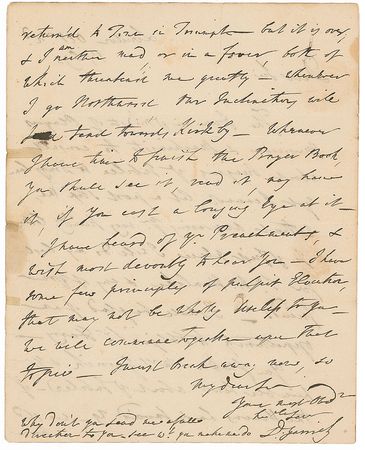 return'd to Town in Triumph - but it is over
& I am neither mad, or in a fever, both of
which threatned me greatly - whenever
I go Northward Our Inclinations will
tend towards Kirkby - Whenever
I have time to finish the Prayer Book,
You shall see it, read it, nay have
it, if You cast a longing Eye at it -
I have heard of yr Preachments, &
wish most devoutly to hear You - I have
some few principles of pulpit Elocution,
that may not be wholly useless to You -
We will commune together upon That
Topic - I must break away now, so
My dear Sir
Your most Obdt
hble Servt
D: Garrick
Why don't you send me a full
Direction to you - see wt. you make me do